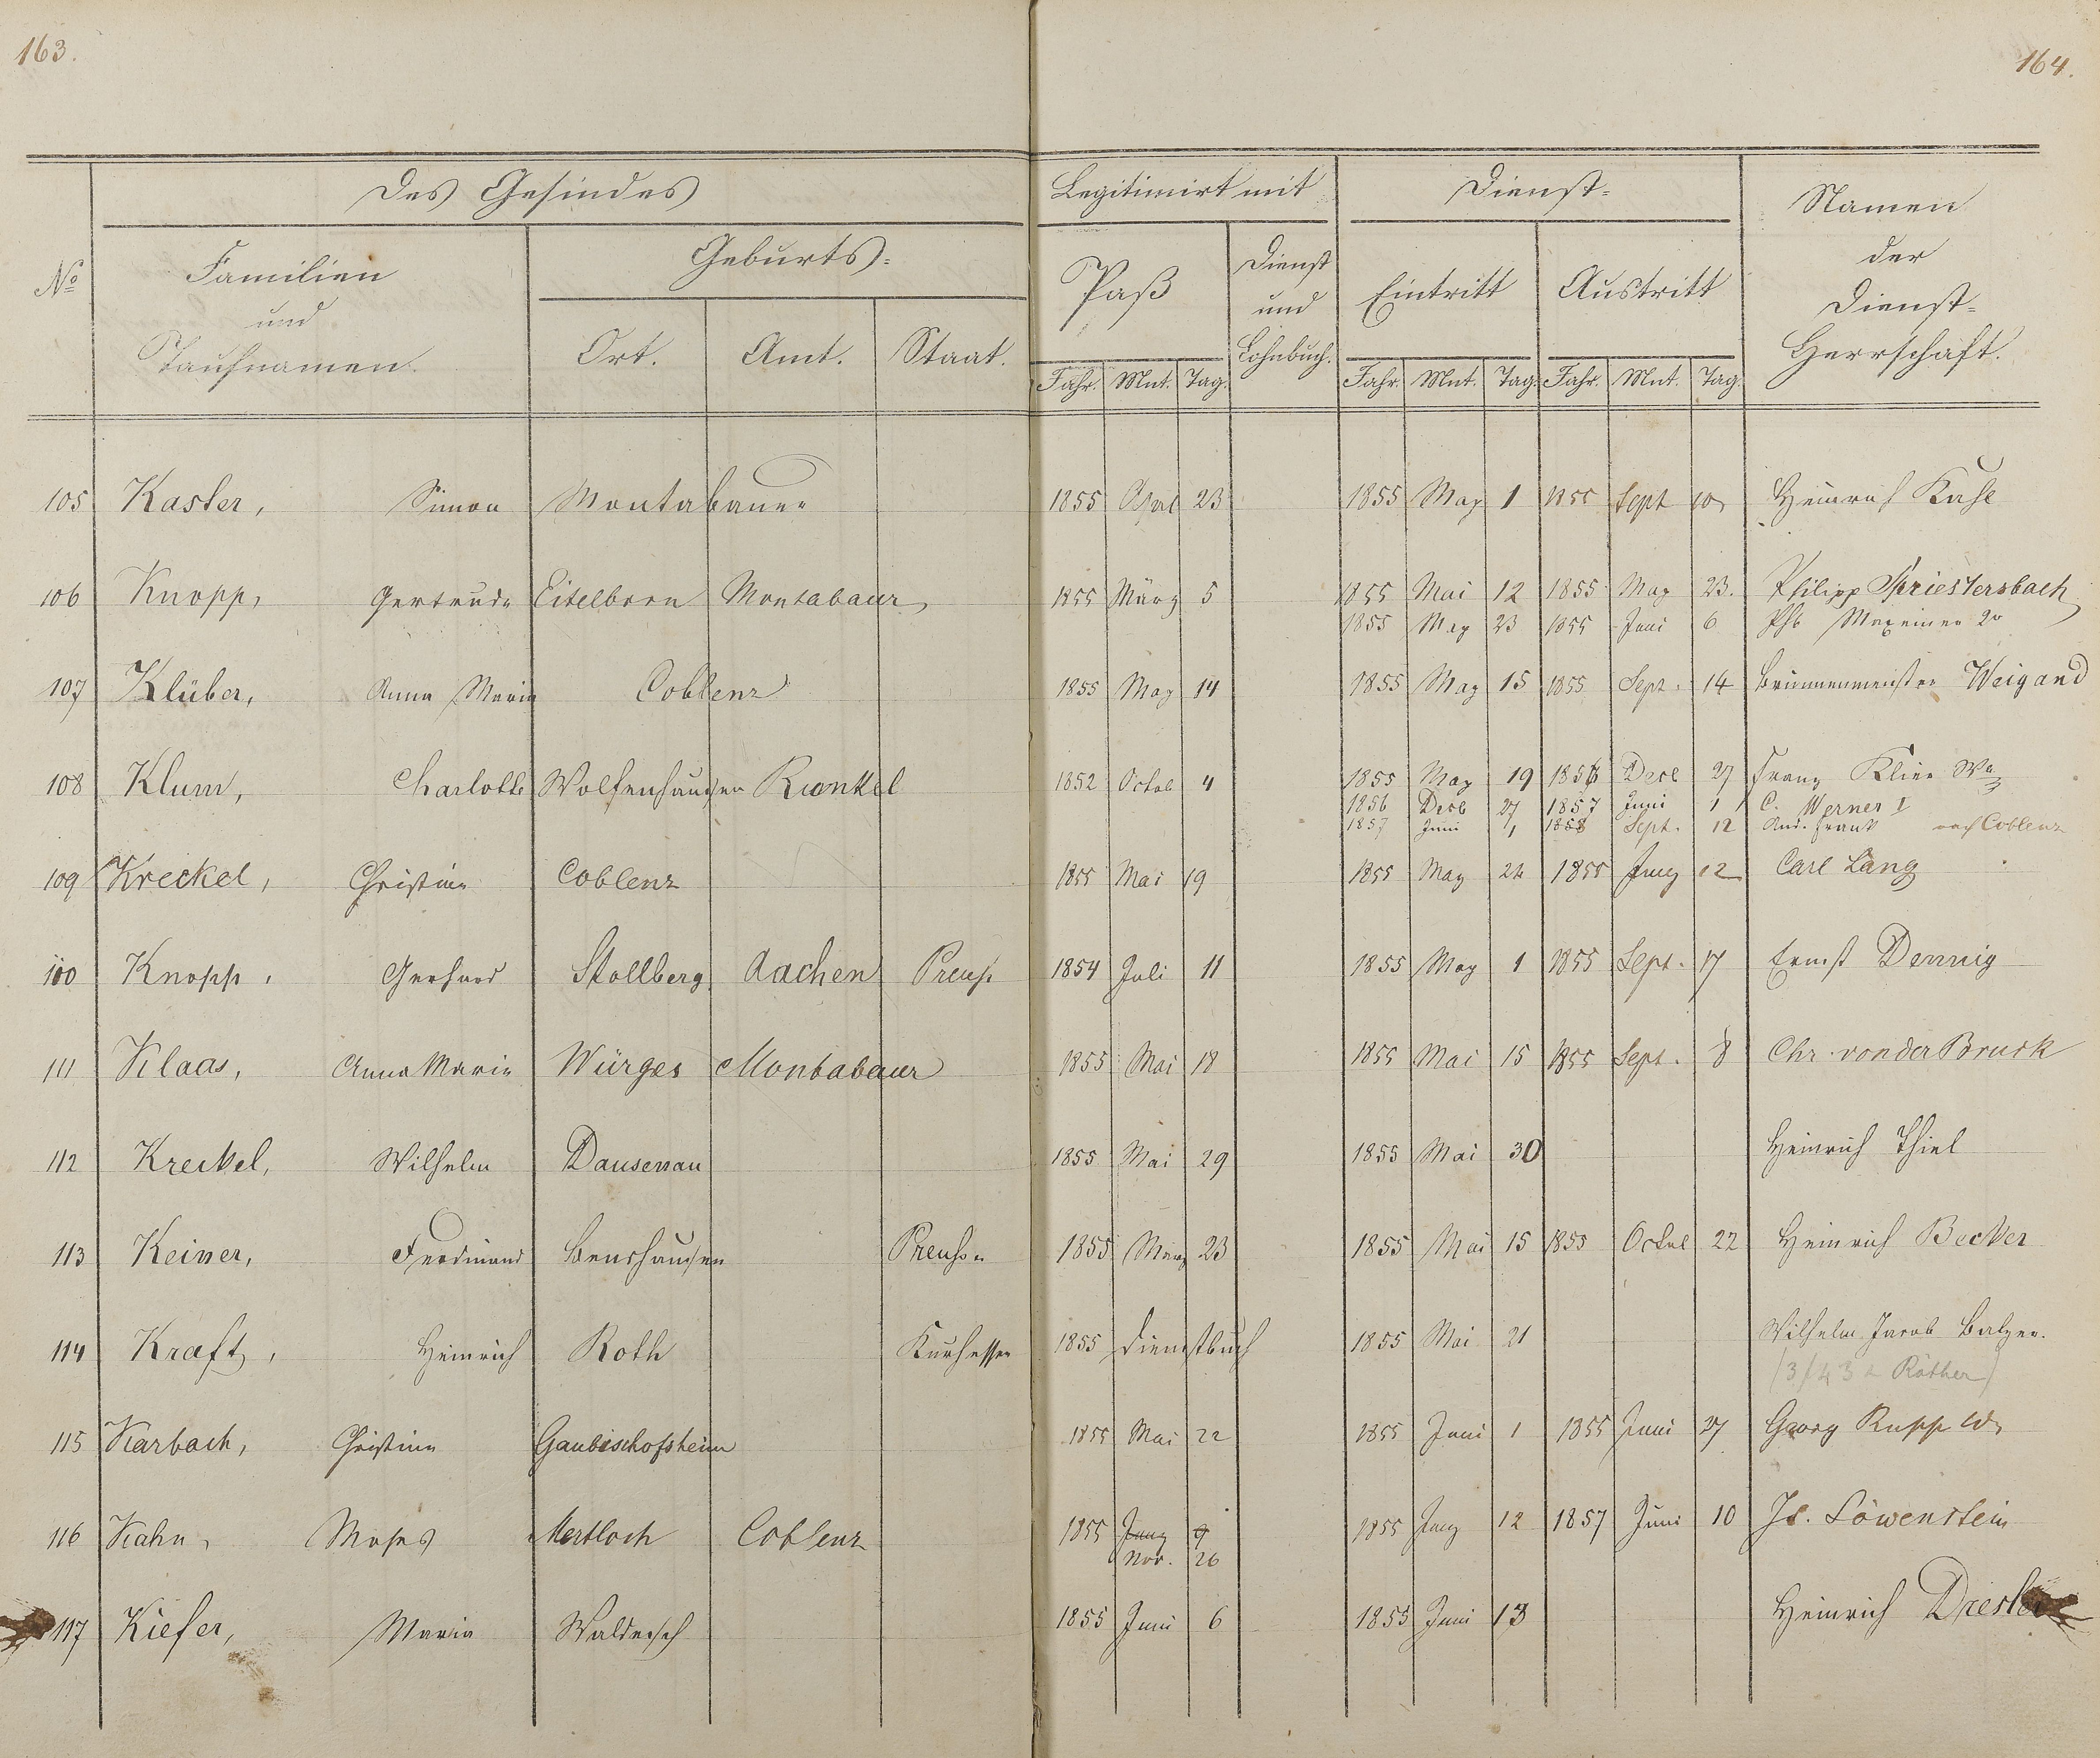 163.
164.
Des Gesindes
Legitimirt mit
Dienst-
Namen
der
Dienst-
Herrschaft.
No
Familien
und
Taufnamen.
Geburts-
Ort. Amt. Staat.
Paß
Dienst
und
Lohnbuch.
Eintritt
Austritt
Jahr. Mnt. Tag.
Jahr. Mnt. Tag. Jahr. Mnt. Tag.
105 Kaster, Simon Montabauer 1855 Aprl 23 1855 May 1 1855 Sept 10 Heinrich
106 Knopp, Gertrude Eitelborn Montabaur 1855 März 5 1855 Mai 12 1855 May 23. Philipp Spriestersbach
1855 May 23 1855 Juni 6 Phl Maxeiner 2r
107 Klüber, Anna Maria Coblenz 1855 May 14 1855 May 15 1855 Sept. 14 Brunnenmeister Weigand
108 Klum, Charlotte Wolfenhausen Runkel 1852 Octob 4 1855 May 19 1856 Decb 27 Franz Klier
1856 Decb 27 1857 Juni 1 C. Werner I
1857 Juni 1 1858 Sept. 12 And. Frank nach Coblenz
109 Kreckel, Christine Coblenz 1855 Mai 19 1855 May 22 1855 Juny 12 Carl Lang
110 Knopp, Gerhard Stollberg Aachen Preuß 1854 Juli 11 1855 May 1 1855 Sept. 17 Ernst Dennig
111 Klaas, Anna Maria Würges Montabaur 1855 Mai 18 1855 Mai 15 1855 Sept. 8 Chr. von der Bruck
112 Kreckel, Wilhelm Dausenau 1855 Mai 29 1855 Mai 30 Heinrich Thiel
113 Keiner, Ferdinand Benshausen Preußen 1855 März 23 1855 Mai 15 1855 Octbe 22 Heinrich Becker
114 Kraft, Heinrich Roth Kurhessen 1855 Dienstbuch 1855 Mai 21 Wilhelm Jacob Balzer.
Röther)
115 Karbach, Christine Gaubischofsheim 1855 Mai 22 1855 Juni 1 1855 Juni 27 Georg Rupp
116 Kahn, Moses Mertloch Coblenz 1855 Juny 9 1855 Juny 12 1857 Juni 10 Js. Löwenstein
Nov. 26
117 Kiefer, Maria Waldesch 1855 Juni 6 1855 Juni 13 Heinrich Diesler